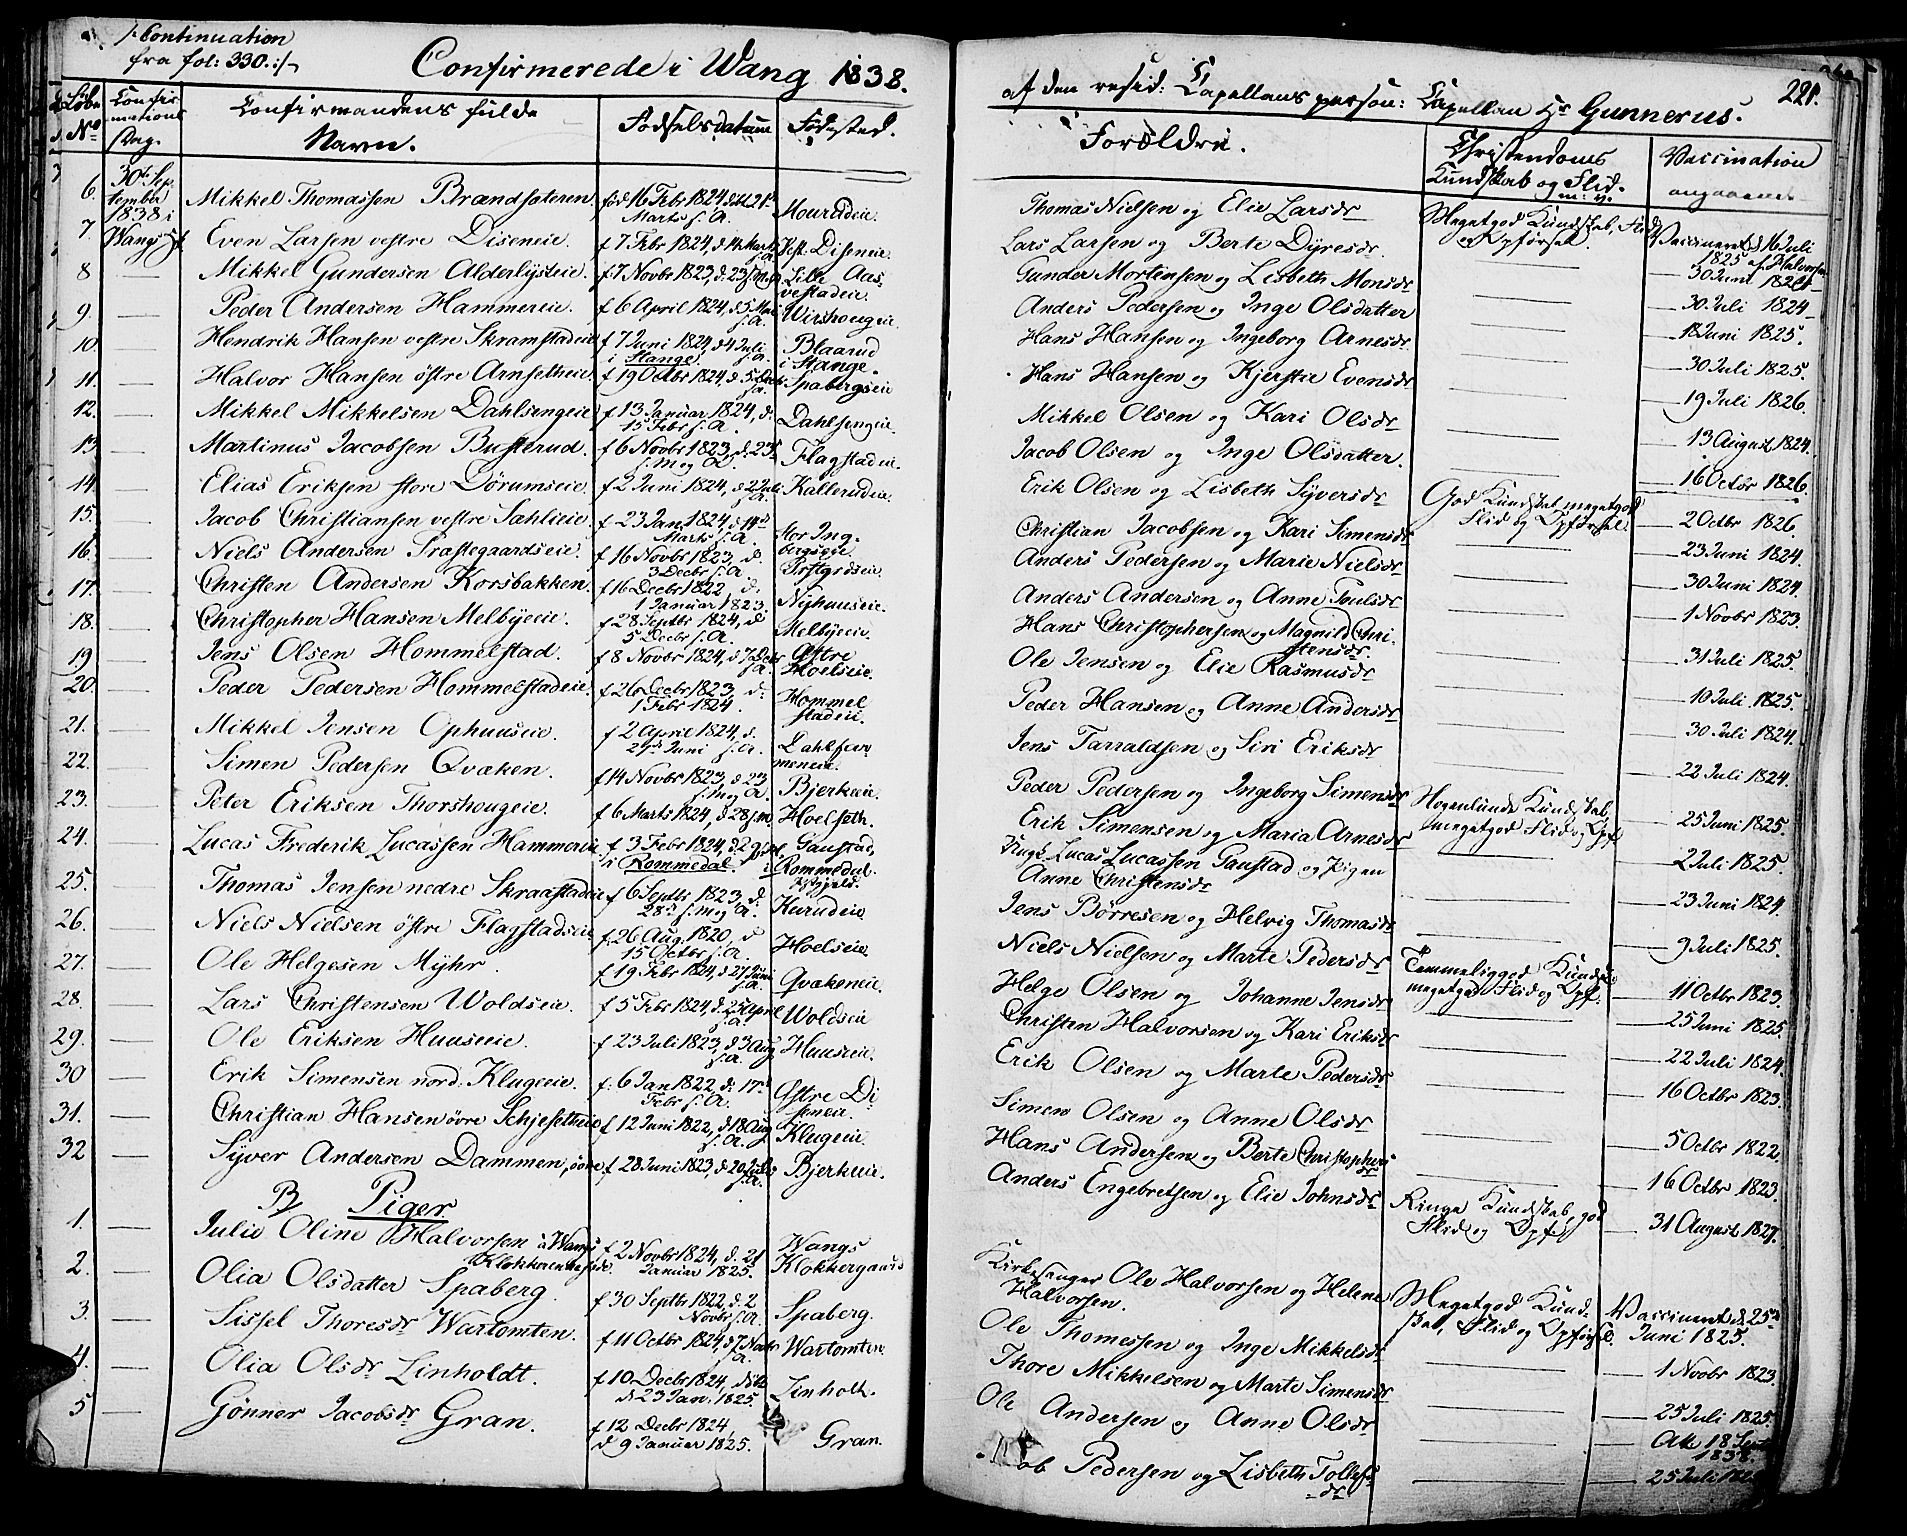 /: Continuation
fra fol: 330. :/
Confirmerede i Wang 1838.
af den resid: Capellans person: Capellan Hr Gunnerus.
221.
Løbe No
Confirmations Dag.
Confirmandens fulde Navn.
Fødselsdatum
Fødested.
Forældre.
Christendoms Kundskab og Flid. m: v.
Vaccination angaaende
6. 30te September 1838 i Wang Mikkel Thomassen Brændsæteren. fød 16 Febr 1824, döbt 21de Marts s. A. Mourudeie. Thomas Nielsen og Elie Larsdr Megetgod Kundskab, Flid og Opførsel. Vaccineret d. 16 Juli 1825 af Halvorsen
7. Even Larsen vestre Diseneie. f 7 Febr 1824, d 14 Marts s. A. Vest. Diseneie. Lars Larsen og Berte Dyresdr.
8 Mikkel Gundersen Alderlysteie. f 7 Novbr 1823, d. 23 s. m og A. Lille Aasvestadeie. Gunder Mortensen og Lisbeth Monsdr 30 Juni 1824
9. Peder Andersen Hammereie. f 6 April 1824, d 5 Mai s. A. Wirshougeie. Anders Pedersen og Inge Olsdatter 30 Juli 1824
10. Hendrik Hansen vestre Skramstadeie f 7 Juni 1824, d 4 Juli s. A. i Stange Blaarud i Stange. Hans Hansen og Ingeborg Arnesdr 18 Juni 1825.
11. Halvor Hansen östre Arnsetheie. f 19 Octbr 1824, d. 5 Decbr s. A. Spabergseie Hans Hansen og Kjerstie Evensdr 30 Juli 1825.
12. Mikkel Mikkelsen Dahlsengeie f 13 Januar 1824, d. 15 Febr s. A. Dahlsengeie. Mikkel Olsen og Kari Olsdr 19 Juli 1826.
13 Martinus Jacobsen Busterud. f 6 Novbr 1823, d. 23de s. m og A. Flagstadeie. Jacob Olsen og Inge Olsdatter. 13 August 1824.
14. Elias Eriksen store Dørumseie. f 2 Juni 1824, d 2 Juli s. A. Kallerudeie. Erik Olsen og Lisbeth Syversdr God Kundskab, megetgod Flid og Opførsel. 16 Octbr 1826.
15. Jacob Christiansen vestre Sahlieie. f. 23 Jan 1824, d 14de Marts s. A. Stor Ingbergseie Christian Jacobsen og Kari Simensdr 2 Octbr 1826.
16. Niels Andersen Præstegaardseie. f 16 Novbr 1823, d. 3 Decbr s. A. Prstgrdseie. Anders Pedersen og Marie Nielsdr 23 Juni 1824.
17. Christen Andersen Korsbakken. f 16 Decbr 1822 d. 1 Januar 1823. Nyhuuseie. Anders Andersen og Anne Poulsdr 30 Juni 1824.
18. Christopher Hansen Melbyeeie. f 28 Septbr 1824, d 5 Decbr s. A. Melbyeeie. Hans Christophersen og Magnild Christensdr. 1 Novbr 1823.
19 Jens Olsen Hommelstad. f 8 Novbr 1824, d 7 Decbr s. A. Østre Hoelseie. Ole Jensen og Elie Rasmusdr 31 Juli 1825.
20. Peder Pedersen Hommelstadeie. f 26 Decbr 1823, d: 1 Febr 1824. Hommelstadeie. Peder Hansen og Anne Andersdr 10 Juli 1825.
21. Mikkel Jensen Ophuuseie. f 2 April 1824, d. 29de Juni s. A. Dahlsfermeneie. Jens Tarraldsen og Siri Eriksdr 30 Juli 1824.
22. Simen Pedersen Qvæken. f 14 Novbr 1823, d 23 s. m og A. Bjerkeeie. Peder Pedersen og Ingeborg Simensdr Nogenlunde Kundskab, megetgod Flid og Opf. 22 Juli 1824.
23. Peter Eriksen Thorshougeie. f 6 Marts 1824, d 28 s. m. Hoelseth. Erik Simensen og Maria Arnesdr 25 Juni 1825.
24. Lucas Frederik Lucassen Hammereie f 3 Febr 1824, d. 29 April i Rommedal Gaustad, i Rommedals Prstgjeld. Ungk. Lucas Lucassen Gaustad og Pigen Anne Christensdr 2 Juli 1825.
25. Thomas Jensen nedre Skraastadeie f 6 Septbr 1823, d. 28de s. m og A. Kurudeie Jens Børresen og Helvig Thomasdr 23 Juni 1824.
26. Niels Nielsen östre Flagstadseie f 26 Aug. 1820, d 15 Octbr s. A. Hoelseie Niels Nielsen og Marte Pedersdr Temmeliggod Kundskab, megetgod Flid og Opf. 9 Juli 1825.
27. Ole Helgesen Myhr. f 19 Febr 1824, d. 27 Juni s. A. Qvækeneie. Helge Olsen og Johanne Jensdr 11 Octbr 1823.
28. Lars Christensen Woldseie. f 5 Febr 1824, d. 25 April s. A. Woldseie Christen Halvorsen og Kari Eriksdr 25 Juni 1825.
29. Ole Eriksen Huuseeie. f 23 Juli 1823, d 3 Aug s. A. Huuseie. Erik Olsen og Marte Pedersdr 22 Juli 1824.
30 Erik Simensen nord: Klugeeie. f: 6 Jan 1822, d: 17de Febr s. A. Østre Diseneie. Simen Olsen og Anne Olsdr 16 Octbr 1823.
31. Christian Hansen övre Schjesetheie f 12 Juni 1822, d 18 Aug s. A. Klugeeie. Hans Andersen og Berte Christophersdr 5 Octbr 1822.
32 Syver Andersen Dammen, övre f 28 Juni 1823, d. 20 Juli s. A. Bjerkeeie. Anders Engebretsen og Elie Johnsdr Ringe Kundskab, god Flid og Opførsel 16 Octbr 1823.
31 August 1827.
B/ Piger
1. Julie Oline Halvorsen a Wangs Klokkerembede. f 2 Novbr 1824, d. 21 Januar 1825. Wangs Klokkergaard Kirkesanger Ole Halvorsen og Helene Halvorsen. Megetgod Kundskab, Flid og Opførsel. Vaccineret d. 25de Juni 1825.
2. Olia Olsdatter Spaberg. f 30 Septbr 1822, d. 2 Novbr s. A. Spaberg. Ole Thomessen og Inge Mikkelsdr 1 Novbr 1823.
3. Sissel Thoresdr Wartomten. f 11 Octbr 1824, d 7 Novbr s. A. Wartomten Thore Mikkelsen og Marte Simensdr 25 Juli 1825.
4. Olia Olsdr Linholdt. f 10 Decbr 1824, döbt d. 23 Jan. 1825. Linholt. Ole Andersen og Anne Olsdr Att. 18 Sept 1838.
5 Gönner Jacobsdr Gran. f 12 Decbr 1824, d 9 Januar 1825. Gran. Jacob Pedersen og Lisbeth Tollefsdr 25 Juli